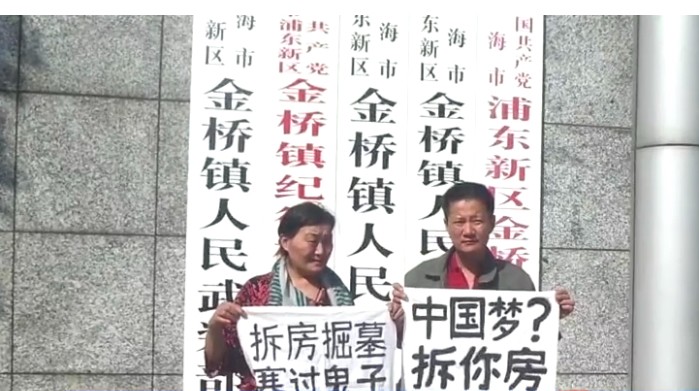 海市
新区
金桥镇人民武
部
共产党
浦东新区
金桥镇纪
海市
东新区
金桥镇人民
海市
东新区
金桥镇
国共产党
海市
浦东新区金桥
拆房掘墓
赛过鬼子
中国梦?
拆你房